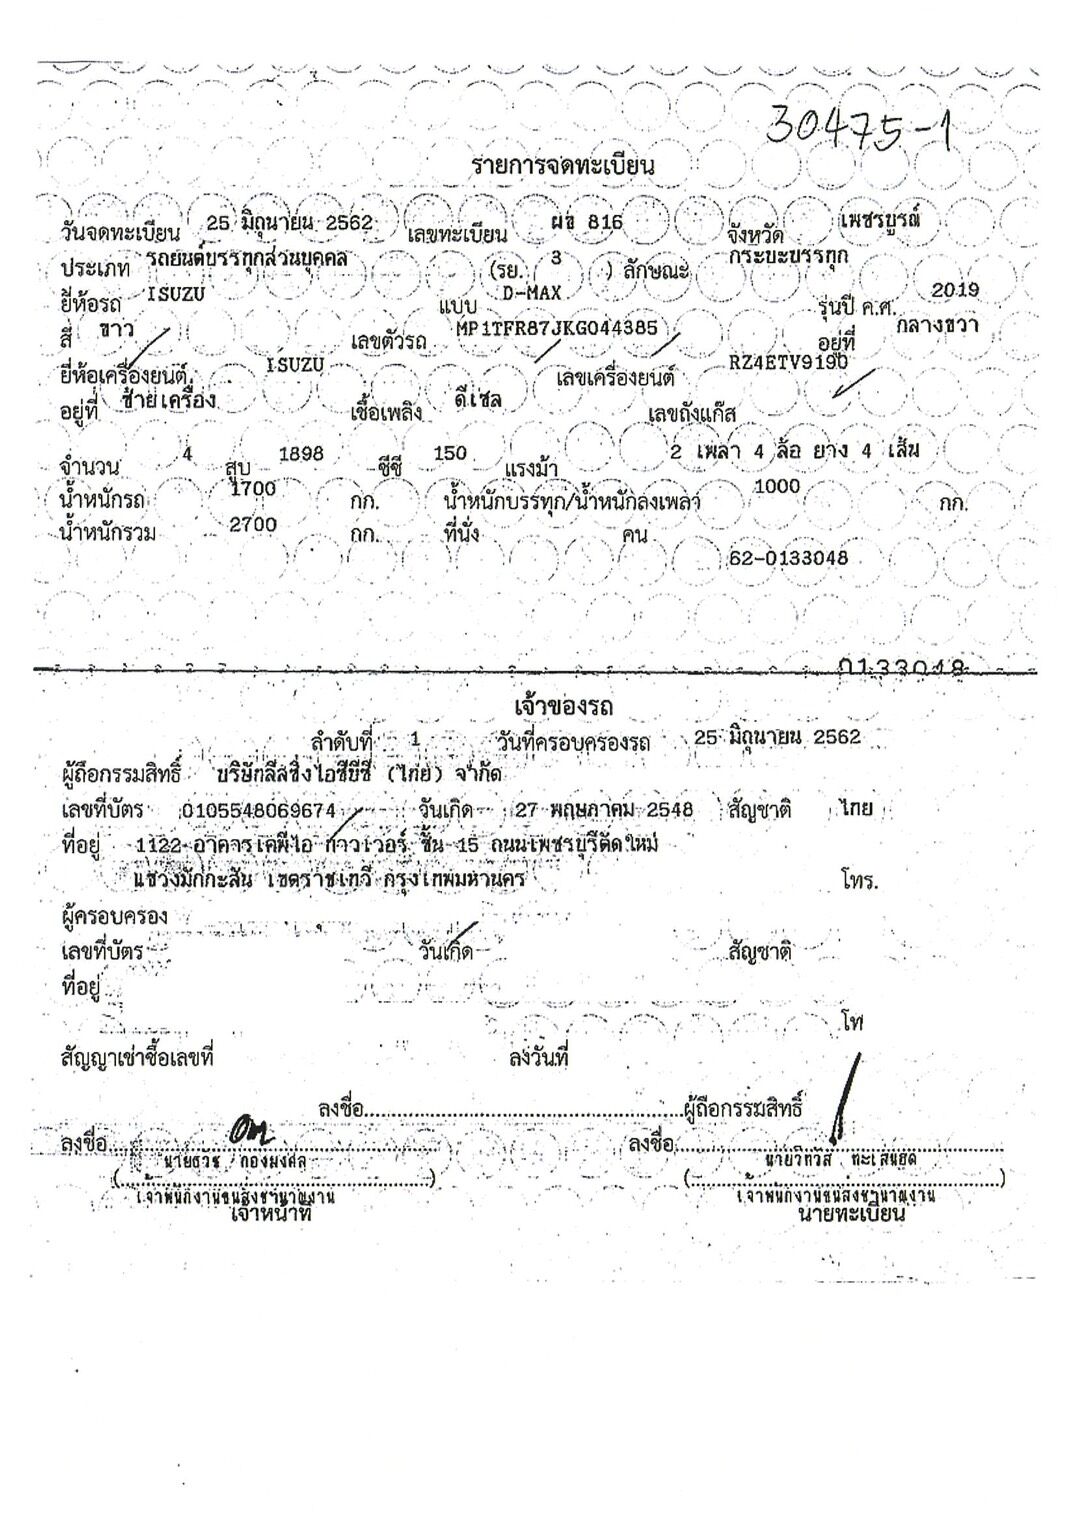 30475-1
รายการจดทะเบียน
วันจดทะเบียน 25 มิถุนายน 2562 เลขทะเบียน ผข 816 จังหวัด เพชรบูรณ์
ประเภท รถยนต์บรรทุกส่วนบุคคล (รย. 3 ) ลักษณะ กระบะบรรทุก
ยี่ห้อรถ ISUZU แบบ D-MAX รุ่นปี ค.ศ. 2019
สี ขาว เลขตัวรถ MP1TFR87JKG044385 อยู่ที่ กลางขวา
ยี่ห้อเครื่องยนต์ ISUZU เลขเครื่องยนต์ RZ4ETV9190
อยู่ที่ ซ้ายเครื่อง เชื้อเพลิง ดีเซล เลขถังแก๊ส
จำนวน 4 สูบ 1898 ซีซี 150 แรงม้า 2 เพลา 4 ล้อ ยาง 4 เส้น
น้ำหนักรถ 1700 กก. น้ำหนักบรรทุก/น้ำหนักลงเพลา 1000 กก.
น้ำหนักรวม 2700 กก. ที่นั่ง คน
62-0133048
0133048
เจ้าของรถ
ลำดับที่ 1 วันที่ครอบครองรถ 25 มิถุนายน 2562
ผู้ถือกรรมสิทธิ์ บริษัทลีสซิ่งไอซีบีซี (ไทย) จำกัด
เลขที่บัตร 0105548069674 วันเกิด 27 พฤษภาคม 2548 สัญชาติ ไทย
ที่อยู่ 1122 อาคารเคพีไอ ทาวเวอร์ ชั้น 15 ถนนเพชรบุรีตัดใหม่
แขวงมักกะสัน เขตราชเทวี กรุงเทพมหานคร โทร.
ผู้ครอบครอง
เลขที่บัตร วันเกิด สัญชาติ
ที่อยู่
โท
สัญญาเช่าซื้อเลขที่ ลงวันที่
ลงชื่อ ผู้ถือกรรมสิทธิ์
ลงชื่อ ลงชื่อ
นายธวช กองมงคล นายวิทวัส
(เจ้าพนักงานขนส่งชำนาญงาน) (เจ้าพนักงานขนส่งชำนาญงาน)
เจ้าหน้าที่ นายทะเบียน